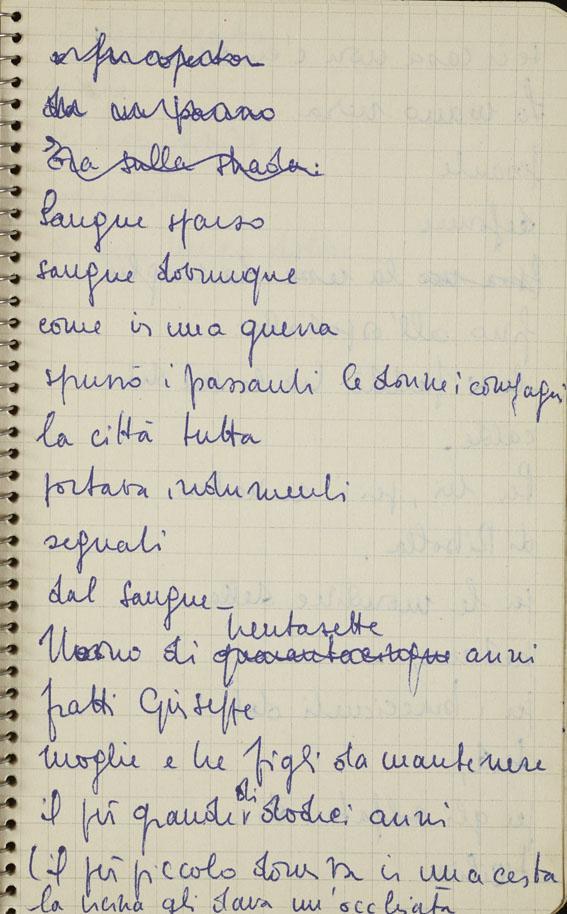 Era sulla strada:
Sangue sparso
sangue dovunque
come in una guerra
spruzzò i passanti le donne i compagni
la città tutta
portava indumenti
segnati
dal sangue –
trentasette
Uomo di quarantacinque anni
Giuseppe
moglie e tre figli da mantenere
il più grande di dodici anni
(il più piccolo dormiva in una cesta
la vicina gli dava un'occhiata